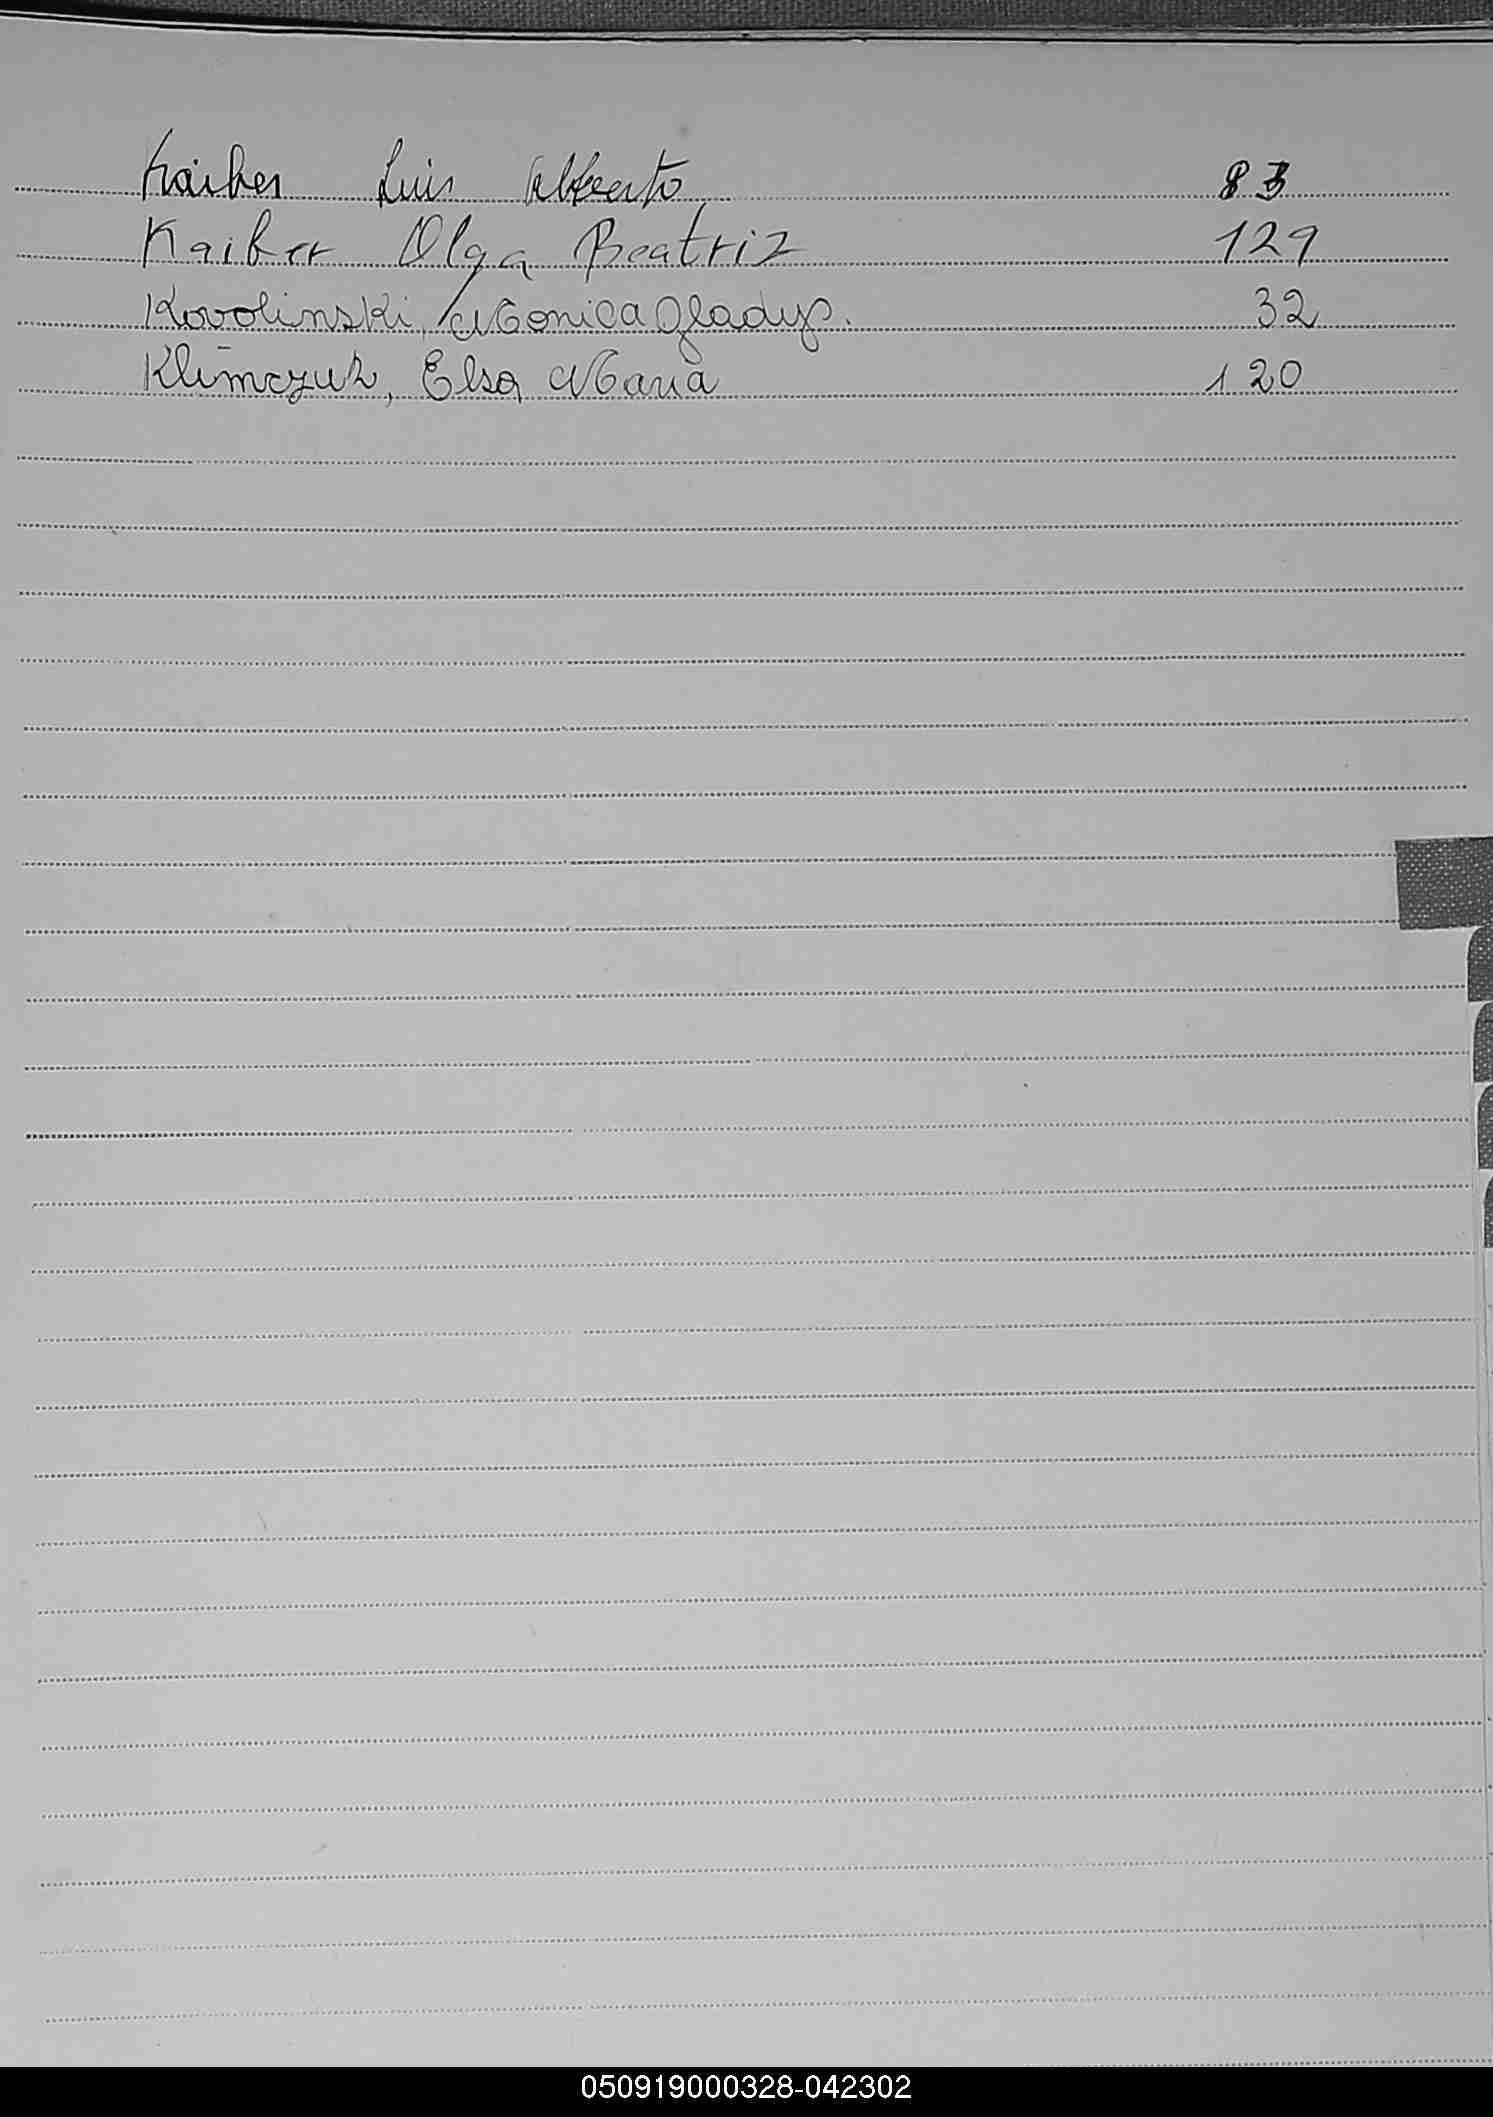 Kaiber Luis Alberto 83
Kaiber Olga Beatriz 129
Kovolinski, Monica Gladys. 32
Klimczuk, Elsa Maria 120
050919000328-042302